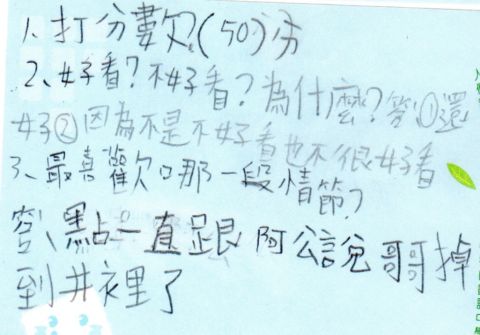 1、打分數(50)分
2、好看?不好看?為什麼?答①還
好②因為不是不好看也不很好看
3、最喜歡哪一段情節?
答、點一直跟阿公說哥哥掉
到井裡了